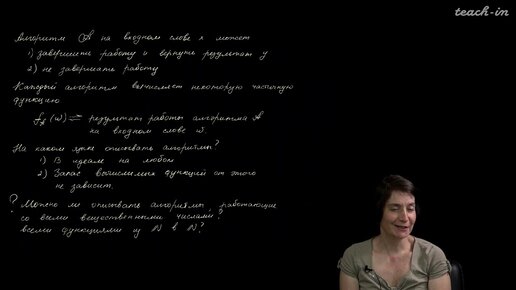 teach-in
Алгоритм A на входном слове x может
1) завершить работу и вернуть результат y
2) не завершать работу
Каждый алгоритм вычисляет некоторую частичную
функцию
f_A(w) ⇌ результат работы алгоритма A
на входном слове w.
На каком языке описывать алгоритмы?
1) В идеале на любом
2) Запас вычислимых функций от этого
не зависит.
? Можно ли описывать алгоритмы, работающие
со всеми вещественными числами?
всеми функциями из N в N?